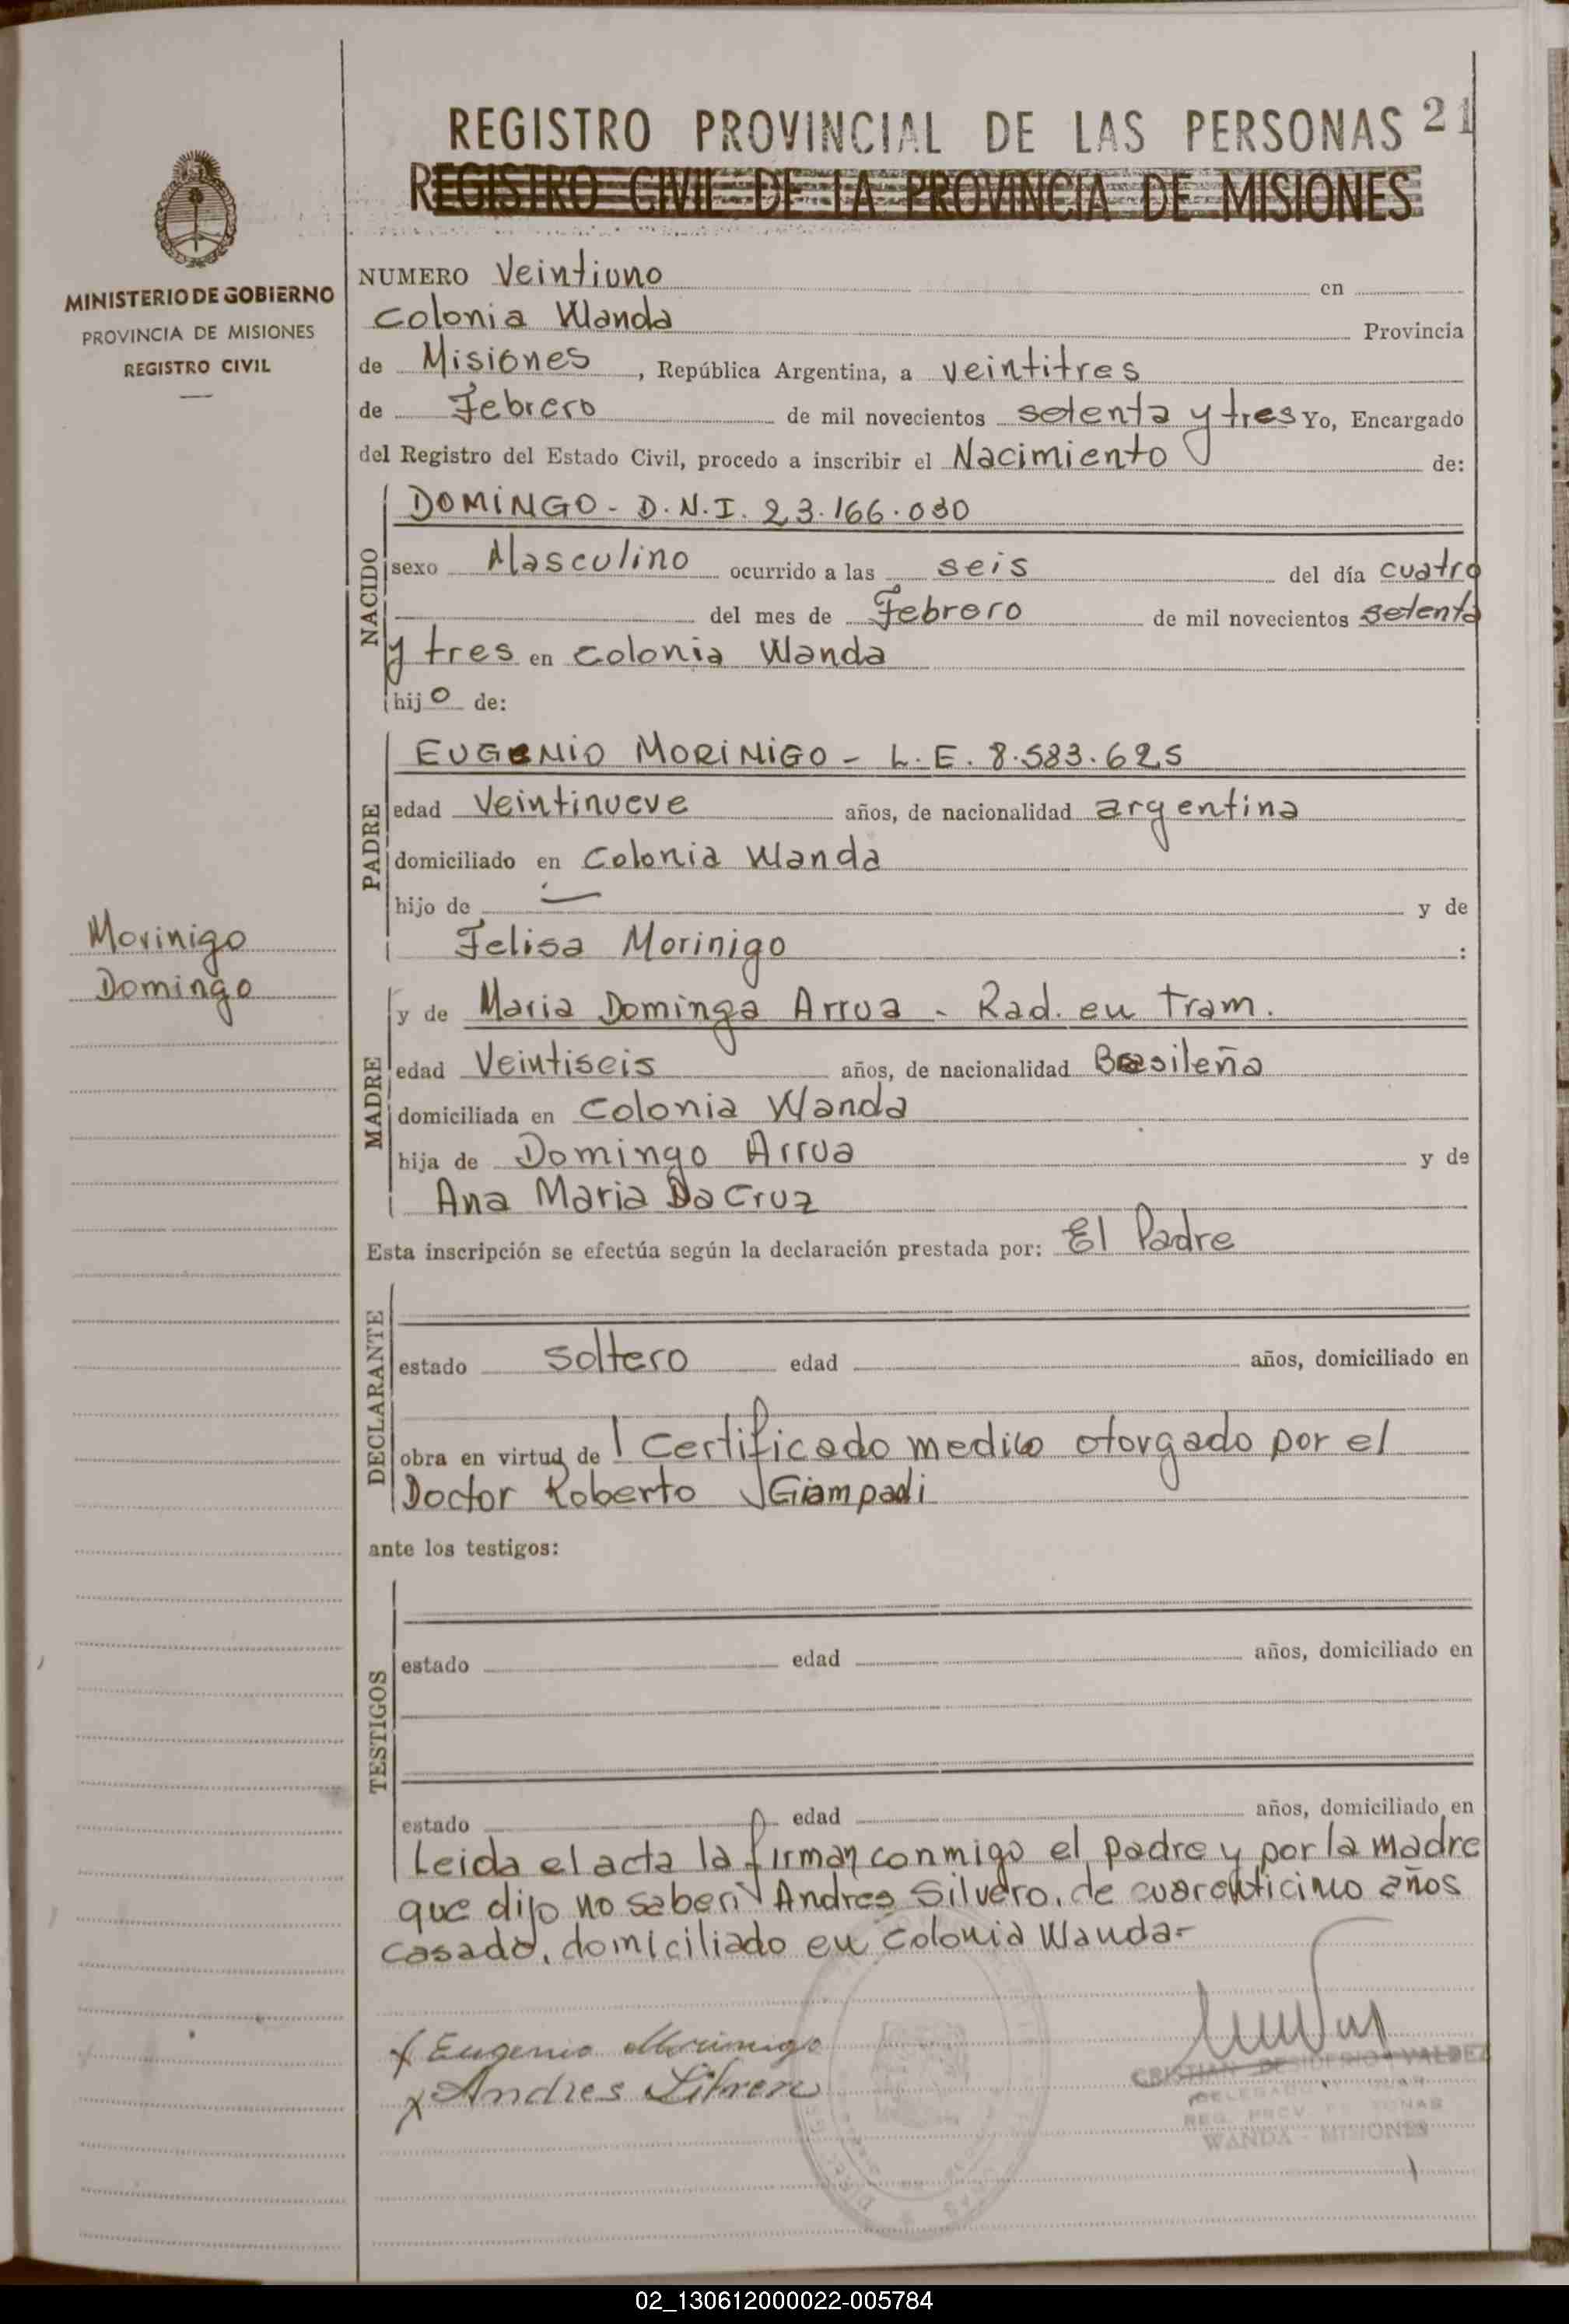 REGISTRO PROVINCIAL DE LAS PERSONAS 21
REGISTRO CIVIL DE LA PROVINCIA DE MISIONES
MINISTERIO DE GOBIERNO
PROVINCIA DE MISIONES
REGISTRO CIVIL
NUMERO Veintiuno en
Colonia Wanda Provincia
de Misiones, República Argentina, a veintitres
de Febrero de mil novecientos setenta y tres Yo, Encargado
del Registro del Estado Civil, procedo a inscribir el Nacimiento de:
NACIDO
DOMINGO - D.N.I. 23.166.030
sexo Masculino ocurrido a las seis del día cuatro
del mes de Febrero de mil novecientos setenta
y tres en Colonia Wanda
hijo de:
PADRE
EUGENIO MORINIGO - L.E. 8.583.625
edad Veintinueve años, de nacionalidad argentina
domiciliado en Colonia Wanda
hijo de — y de
Felisa Morinigo :
Morinigo
Domingo
MADRE
y de Maria Dominga Arrua - Rad. en Tram.
edad Veintiseis años, de nacionalidad Brasileña
domiciliada en Colonia Wanda
hija de Domingo Arrua y de
Ana Maria Da Cruz
Esta inscripción se efectúa según la declaración prestada por: El Padre
DECLARANTE
estado soltero edad años, domiciliado en
obra en virtud de 1 Certificado medico otorgado por el
Doctor Roberto Giampadi
ante los testigos:
TESTIGOS
estado edad años, domiciliado en
estado edad años, domiciliado en
Leida el acta la firman conmigo el padre y por la madre
que dijo no saber Andres Silvero, de cuarenticinco años
casado, domiciliado en Colonia Wanda-
x Eugenio Morinigo
x Andres
CRISTIAN DESIDERIO VALDEZ
DELEGADO
REG. PROV.
WANDA - MISIONES
02_130612000022-005784